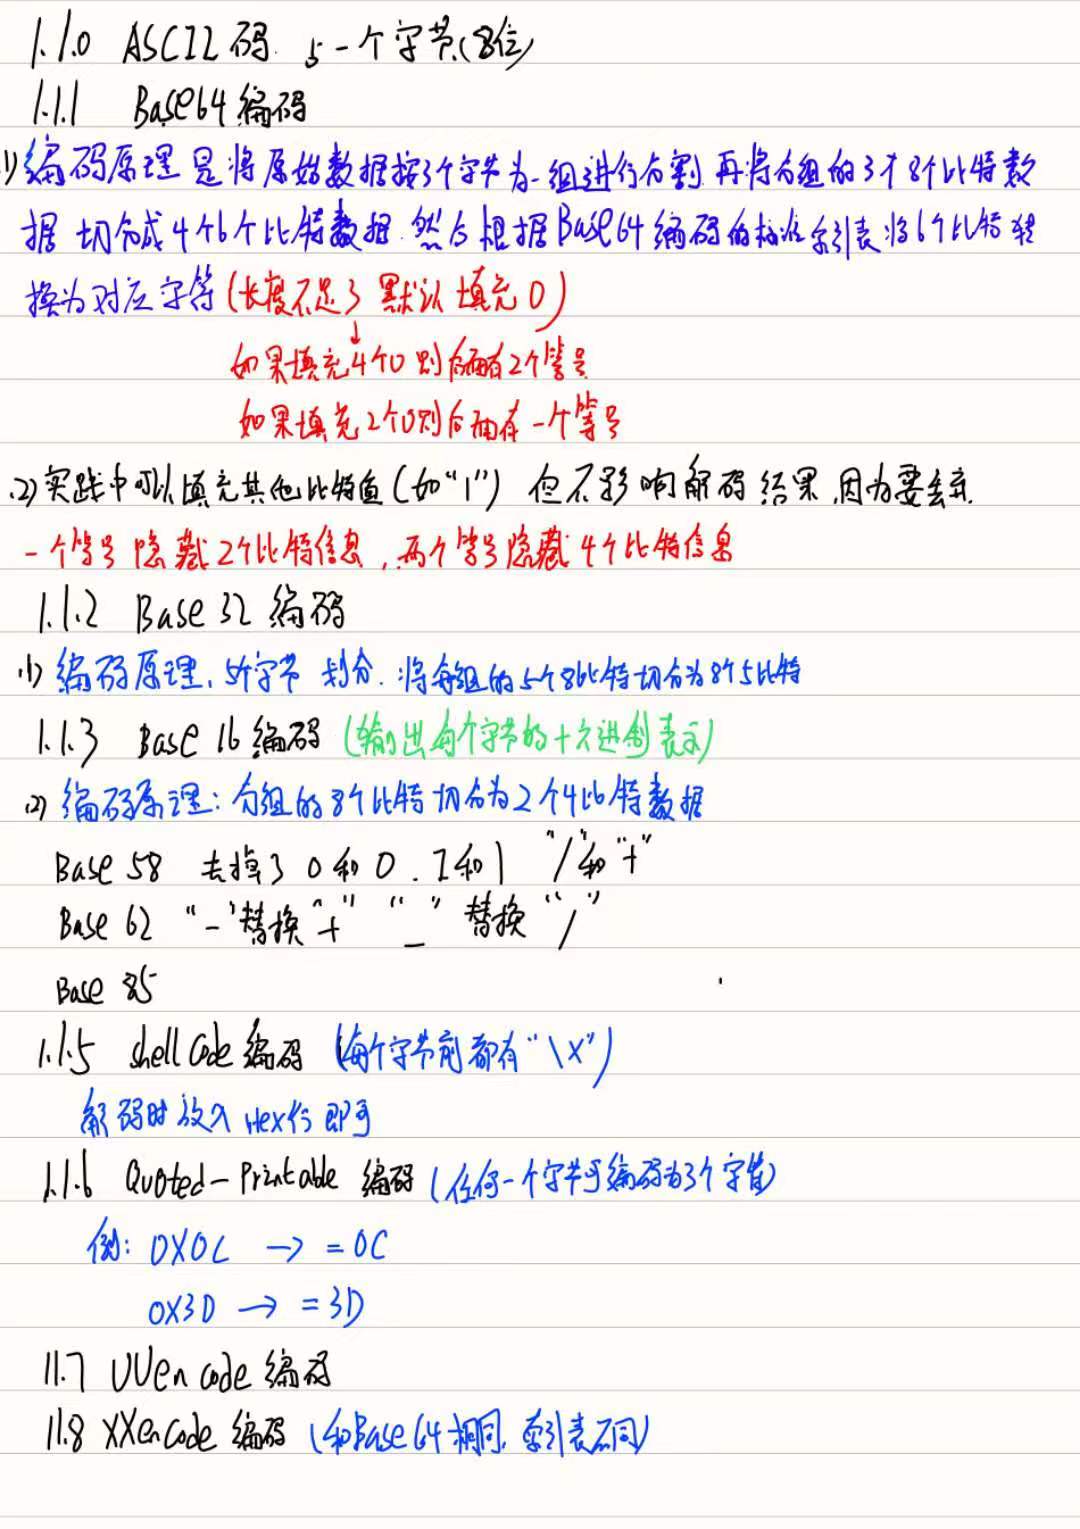 1.1.0 ASCII码. 占一个字节(8位)
1.1.1 Base64编码
(1) 编码原理是将原始数据按3个字节为一组进行分割 再将分组的3个8个比特数
据 切分成4个6个比特数据. 然后根据Base64编码的标准索引表将6个比特转
换为对应字符(长度不足3 默认填充0)
如果填充4个0则后面有2个等号
如果填充2个0则后面有一个等号
(2) 实践中可以填充其他比特值(如"1") 但不影响解码结果,因为要丢弃.
一个等号隐藏2个比特信息,两个等号隐藏4个比特信息
1.1.2 Base 32 编码
(1) 编码原理, 5个字节 划分. 将每组的5个8比特切分为8个5比特
1.1.3 Base 16 编码 (输出每个字节的十六进制表示)
(2) 编码原理: 分组的8个比特切分为2个4比特数据
Base 58 去掉了 0 和 O . I 和 l "/"和"+"
Base 62 "-"替换"+" "_" 替换 "/"
Base 85
1.1.5 shellcode编码 (每个字节前都有"\x")
解码时放入Hex行即可
1.1.6 Quoted-Printable 编码 (任何一个字节可编码为3个字符)
例: 0X0C → =0C
0X3D → =3D
11.7 UUencode编码
11.8 XXencode 编码 (和Base64相同, 索引表不同)